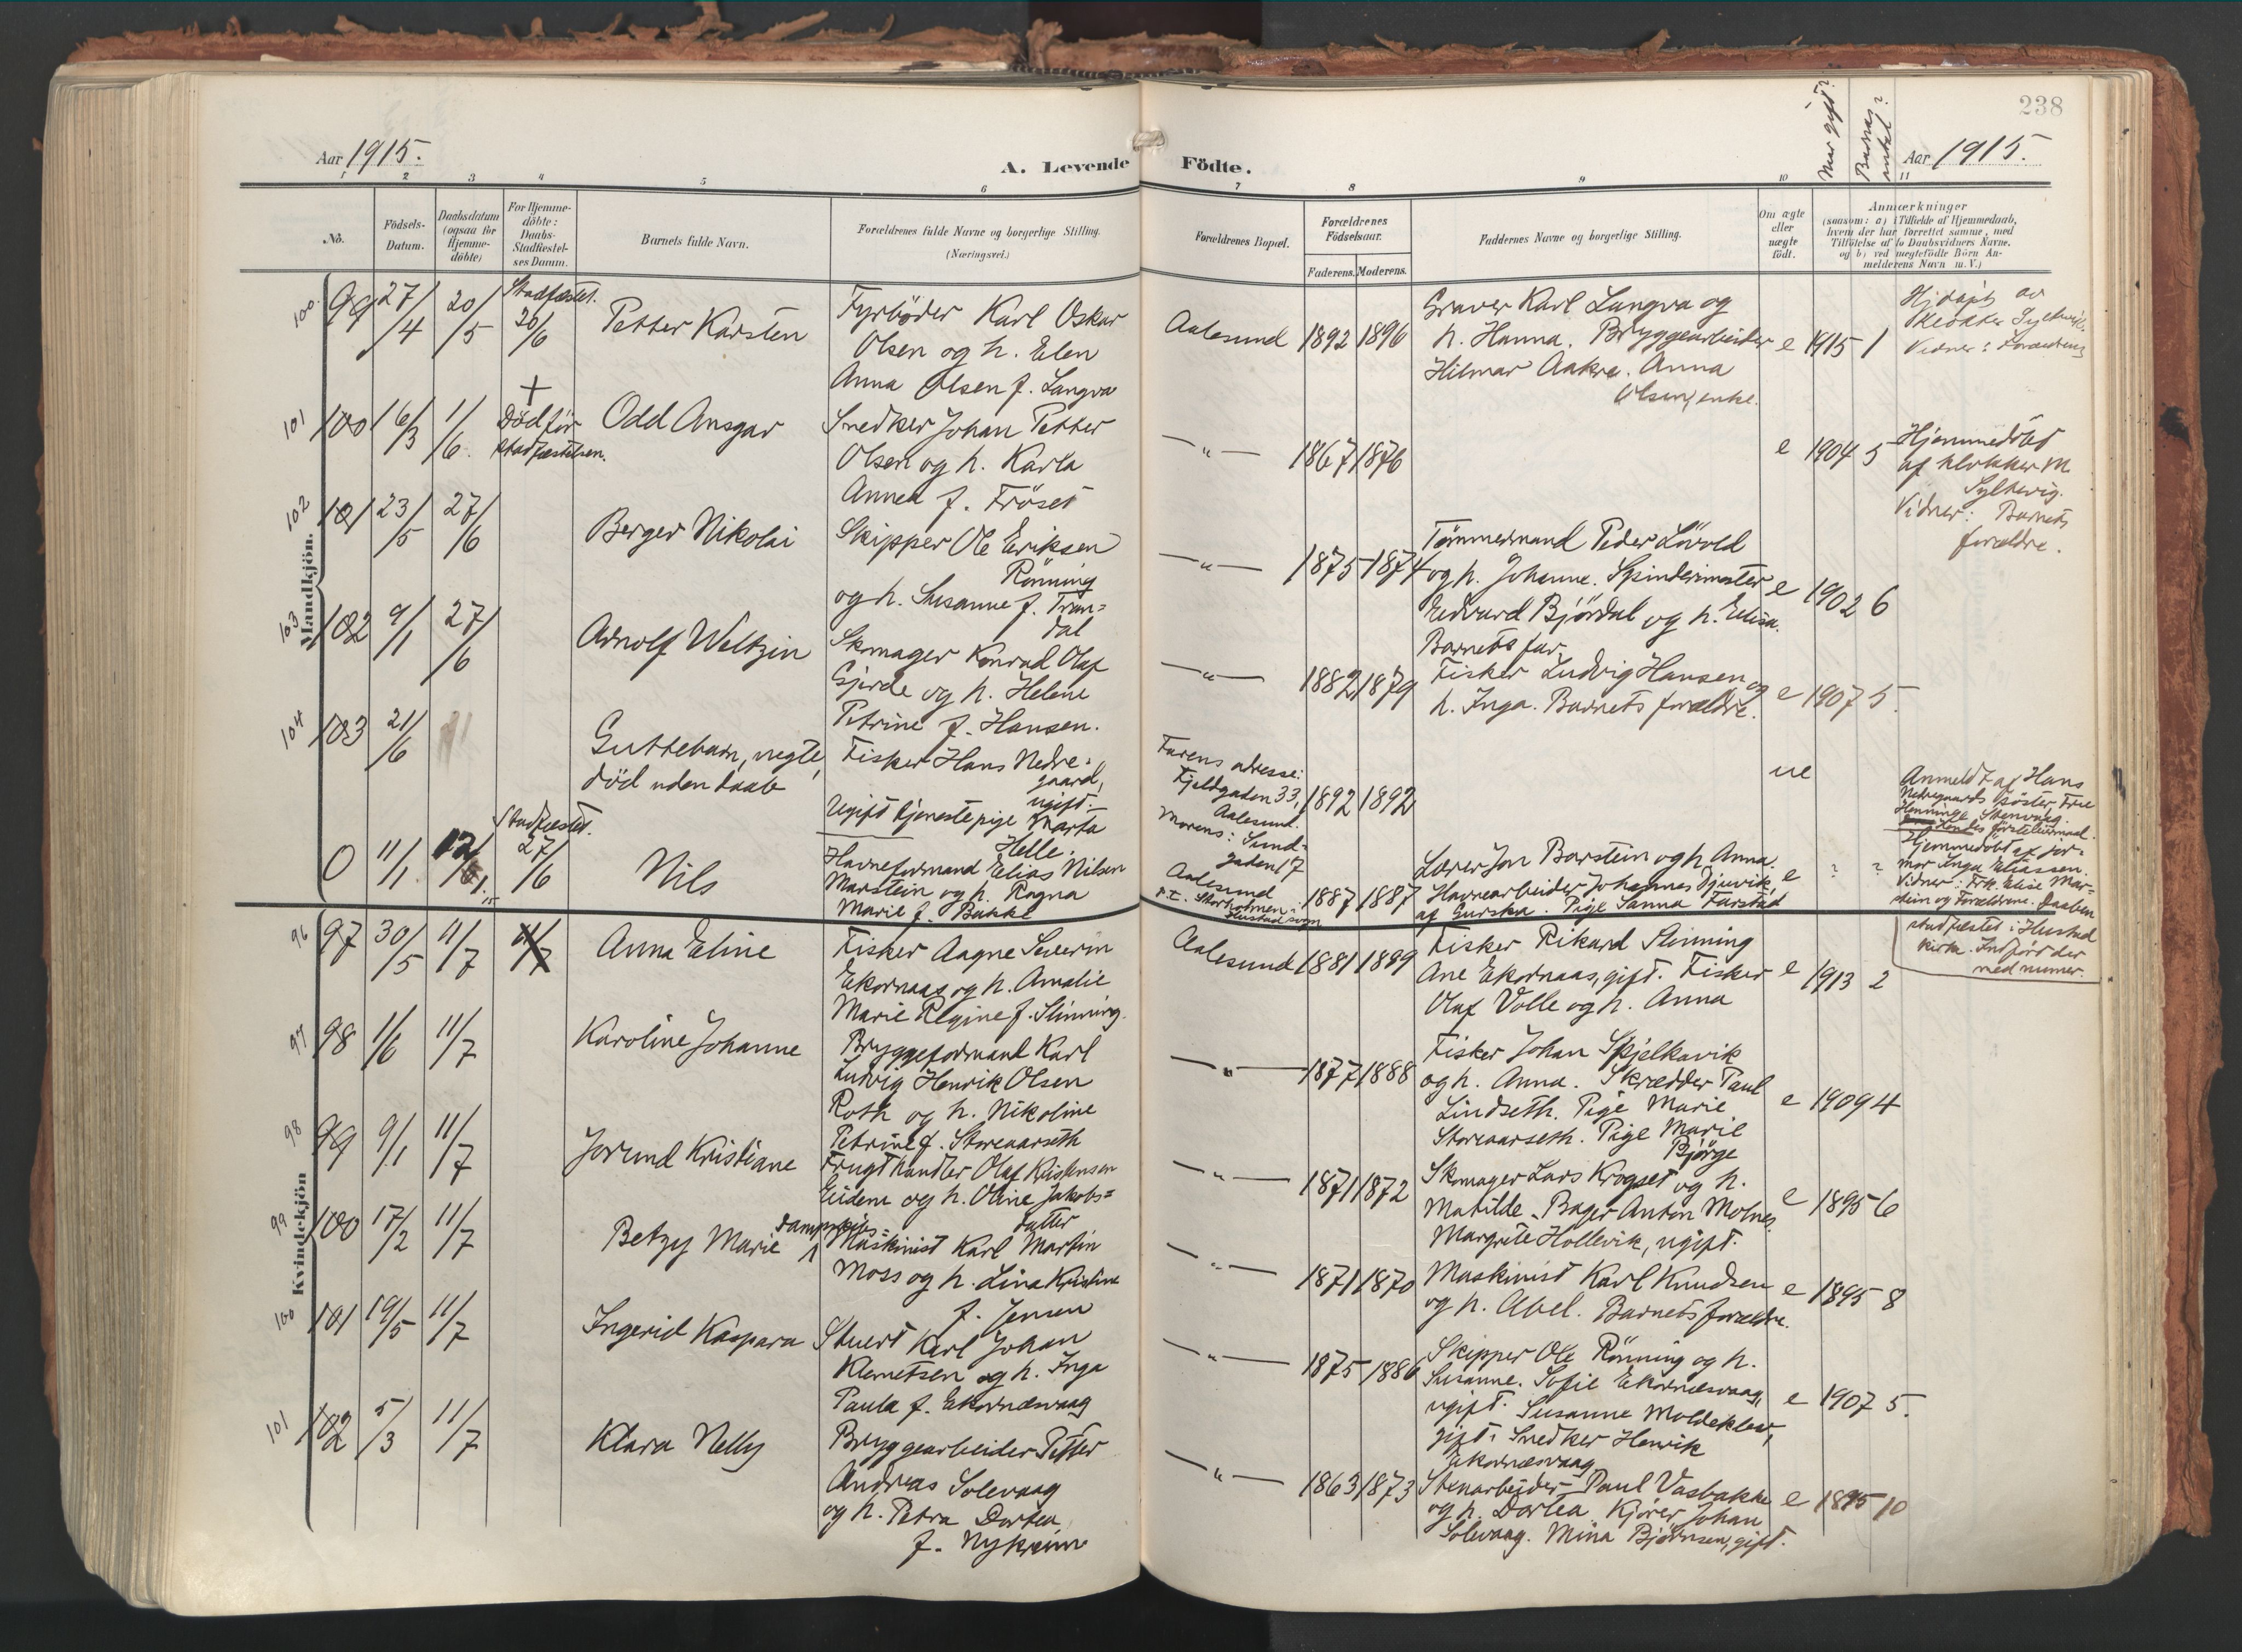 238
Aar 1915.
A. Levende Födte.
Nar gift?
Barnas antal?
Aar 1915.
1 2 3 4 5 6 7 8 9 10 11
No.
Födsels-Datum.
Daabsdatum (ogsaa for Hjemme-döbte)
For Hjemme-döbte: Daabs-Stadfæstel-ses Datum.
Barnets fulde Navn.
Forældrenes fulde Navne og borgerlige Stilling. (Næringsvei.)
Forældrenes Bopæl.
Forældrenes Födselsaar.
Faderens. Moderens.
Faddernes Navne og borgerlige Stilling.
Om ægte eller uægte födt.
Anmærkninger
(saasom: a) i Tilfælde af Hjemmedaab,
hvem der har forrettet samme, med
Tilföielse af to Daabsvidners Navne.
og b) ved uægtefödte Börn An-
melderens Navn m. V.)
Mandkjön.
100 99 27/4 20/5 Stadfæstet. 20/6
Petter Karsten
Fyrböder Karl Oskar
Olsen og h. Elen
Anna Olsen f. Langva
Aalesund 1892 1896
Graver Karl Langva og
h. Hanna. Bryggearbeider
Hilmar Aakre. Anna
Olsen, enke.
e 1915 1
Hjdøpt av
klokker Sylthevik.
Vidner: Forældrene
101 100 16/3 1/6. + Död før stadfæstelsen.
Odd Ansgar
Snedker Johan Petter
Olsen og h. Karla
Annea f. Fröset
— " — 1867 1876
e 1904 5
Hjemmedöbt
af klokker M.
Syltevig.
Vidner: Barnets
forældre.
102 101 23/5 27/6
Berger Nikolai
Skipper Ole Eriksen
Rönning
og h. Susanne f. Tran=
dal
— " — 1875 1874
Tømmermand Peder Lövold
og h. Johanne. Spinderimester
Edvard Björdal og h. Elisa.
Barnets far.
e 1902 6
103 102 9/1 27/6
Arnolf Weltzin
Skomager Konrad Olaf
Gjerde og h. Helene
Petrine f. Hansen.
— " — 1882 1879
Fisker Ludvig Hansen og
h. Inga. Barnets forældre.
e 1907 5.
104 103 21/6
Guttebarn, uegte,
död uden daab
Fisker Hans Nedre-
gaard,
ugift. —
Ugift tjenestepige Marta
Helle.
Farens adresse:
Fjeldgaden 33,
Aalesund.
Morens: Sund-
gaden 17
1892 1892
ue
Anmeldt af Hans
Nedregaards söster, Frue
Henninge Stenvaag.
Hendes förstebarn.
0 11/1 12/6 Stadfæstet. 27/6
Nils
Havneformand Elias Nilsen
Marstein og h. Ragna
Marie f. Bakke
Aalesund
p.t. Storholmen
Hustad sogn
1887 1887
Lærer Jon Barstein og h. Anna.
Havnearbeider Johannes Djuvik,
af Gurska. Pige Sanna Farstad
e ? ?
Hjemmedöbt af jor=
mor Inga Eliassen.
Vidner: Frk. Elise Mar=
stein og Forældrene. Daaben
stadfæstet i Hustad
kirke. Indfört der
med numer.
Kvindekjön
96 97 30/5 11/7
Anna Eline
Fisker Aagne Severin
Ekornaas og h. Amalie
Marie Regine f. Slinning.
Aalesund 1881 1889
Fisker Rikard Slinning
Ane Ekornaas, gift. Fisker
Olaf Volle og h. Anna
e 1913 2
97 98 1/6 11/7
Karoline Johanne
Bryggeformand Karl
Ludvig Henrik Olsen
Roth og h. Nikoline
Petrine f. Storevarseth
— " — 1877 1888
Fisker Johan Spjelkavik
og h. Anna. Skrædder Paul
Lindseth. Pige Marie
Storevarseth. Pige Marie
Bjørge
e 1909 4
98 99 9/1 11/7
Jorund Kristiane
Frugthandler Olaf Kristensen
Eidem og h. Oline Jakobs=
datter
— " — 1871 1872
Skomager Lars Krogset og h.
Matilde. Bager Anton Molnes.
Margrete Hollevik, ugift.
e 1895 6
99 100 17/2 11/7
Betzy Marie
Dampskibs=
Maskinist Karl Martin
Moss og h. Lina Kristine
f. Jensen
— " — 1871 1870
Maskinist Karl Knudsen
og h. Abel. Barnets forældre.
e 1895 8
100 101 19/5 11/7
Ingerid Kaspara
Stuert Karl Johan
Klemetsen og h. Inga
Paula f. Ekornæsvaag
— " — 1875 1886
Skipper Ole Rönning og h.
Susanne. Sofie Ekornæsvaag,
ugift. Susanne Moldeklev,
gift. Snedker Henrik
Ekornæsvaag
e 1907 5.
101 102 5/3 11/7
Klara Nelly
Bryggearbeider Petter
Andreas Solevaag
og h. Petra Dortea
f. Nykreim
— " — 1863 1873
Stenarbeider Paul Vasbakke
og h. Dortea. Kjörer Johan
Solevaag. Mina Bjørnsen, gift.
e 1895 10